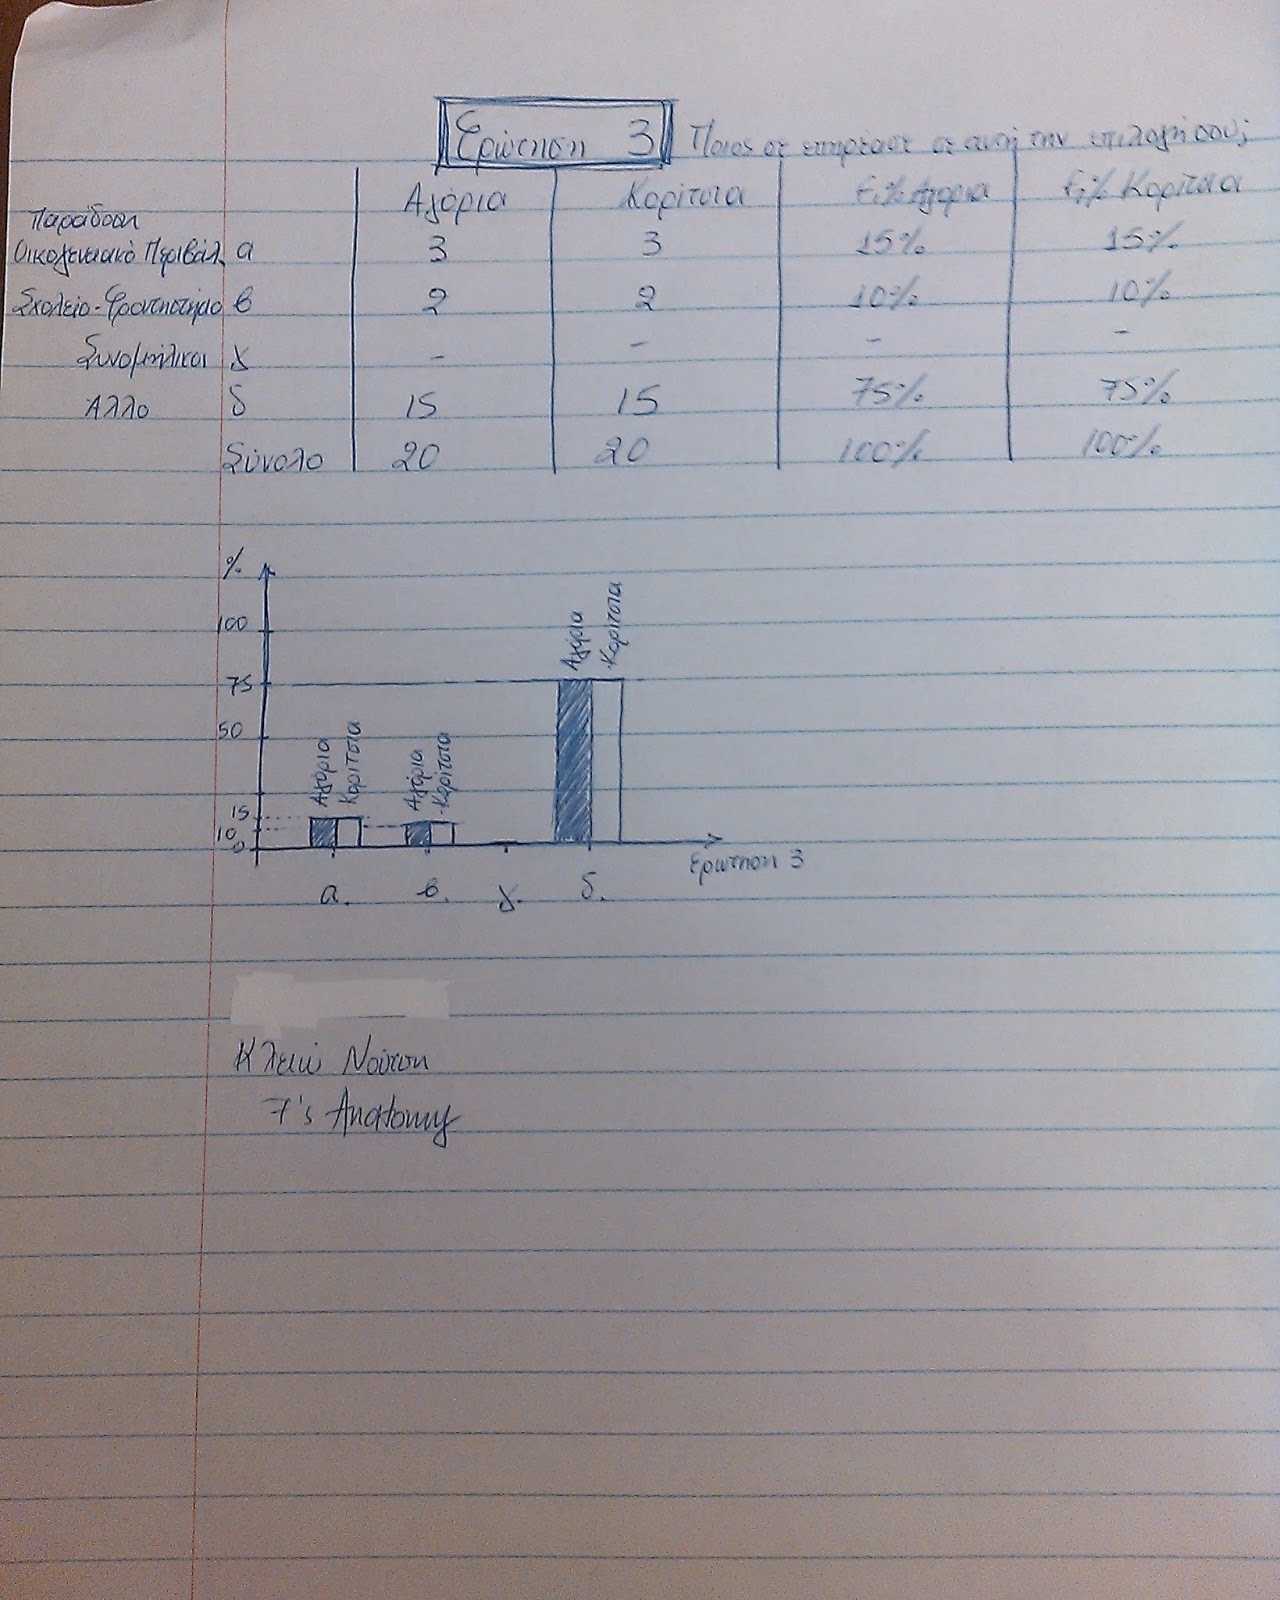 Ερώτηση 3 Ποιος σε επηρέασε σε αυτή την επιλογή σου;
Αγόρια Κορίτσια fi% Αγόρια fi% Κορίτσια
Παράδοση
Οικογενειακό Περιβάλ. α 3 3 15% 15%
Σχολείο-Φροντιστήριο β 2 2 10% 10%
Συνομήλικοι γ - - - -
Άλλο δ 15 15 75% 75%
Σύνολο 20 20 100% 100%
%
100
75
50
15
10
0
Αγόρια Κορίτσια Αγόρια Κορίτσια Αγόρια Κορίτσια
Ερώτηση 3
α. β. γ. δ.
Κλειώ Νούτση
7's Anatomy